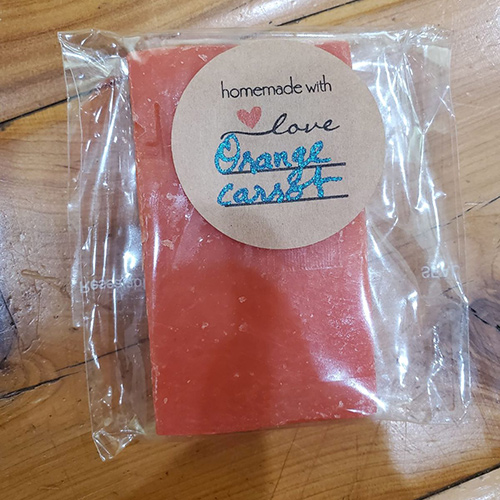 homemade with
love
Orange
carrot